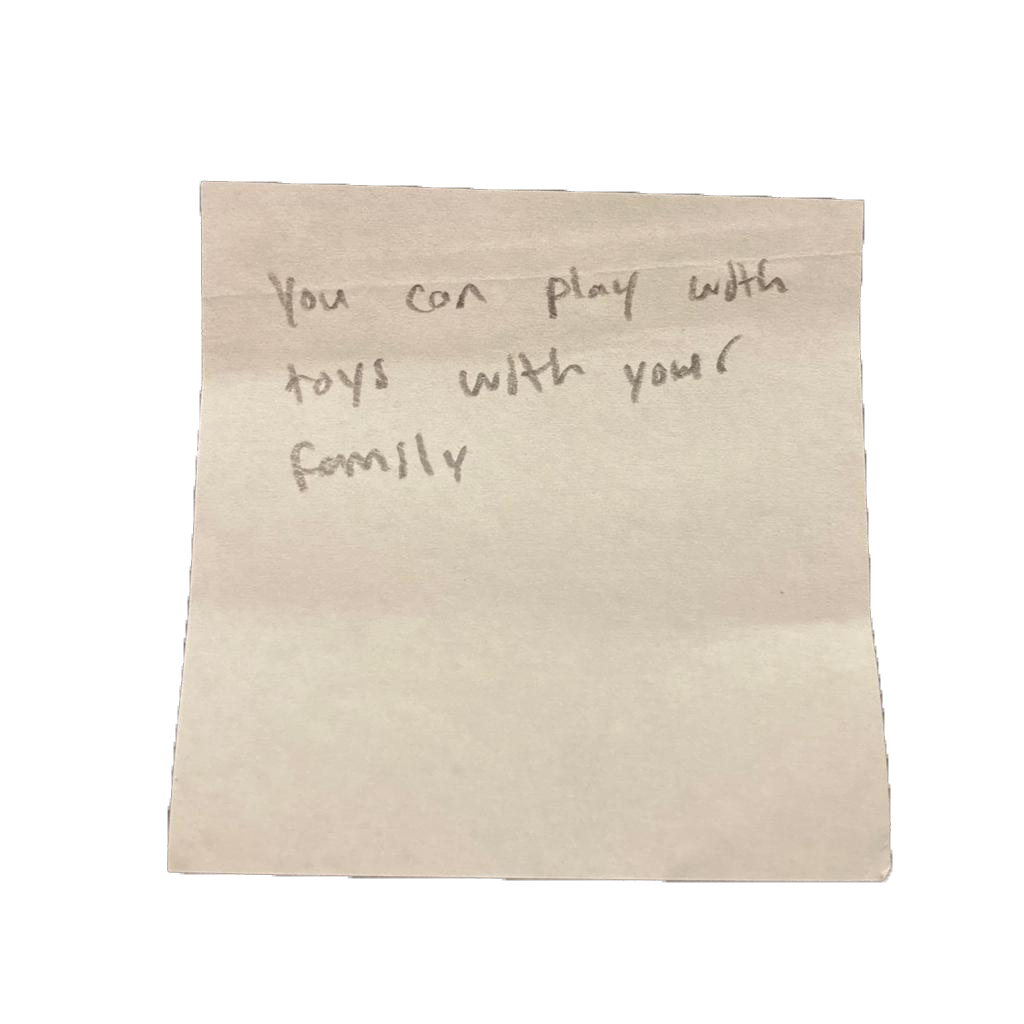 You can play with
toys with your
family